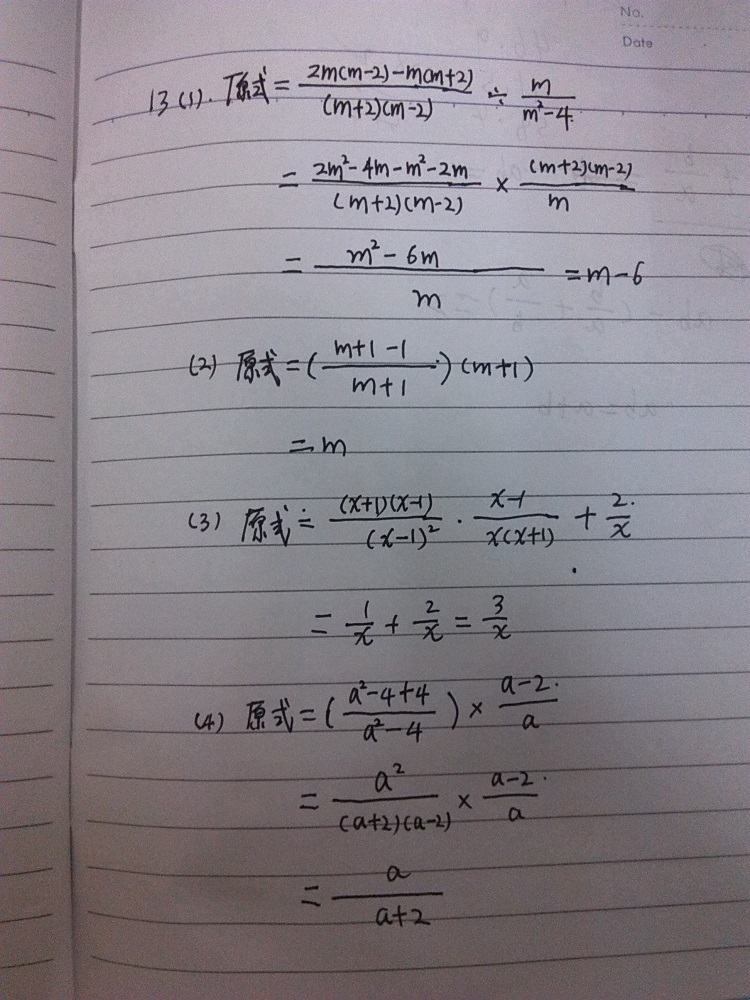 No.
Date
13(1). 原式 = \frac{2m(m-2)-m(m+2)}{(m+2)(m-2)} ÷ \frac{m}{m²-4}
= \frac{2m²-4m-m²-2m}{(m+2)(m-2)} × \frac{(m+2)(m-2)}{m}
= \frac{m²-6m}{m} = m-6
(2) 原式 = (\frac{m+1-1}{m+1})(m+1)
= m
(3) 原式 = \frac{(x+1)(x-1)}{(x-1)²} · \frac{x-1}{x(x+1)} + \frac{2}{x}
= \frac{1}{x} + \frac{2}{x} = \frac{3}{x}
(4) 原式 = (\frac{a²-4+4}{a²-4}) × \frac{a-2}{a}
= \frac{a²}{(a+2)(a-2)} × \frac{a-2}{a}
= \frac{a}{a+2}